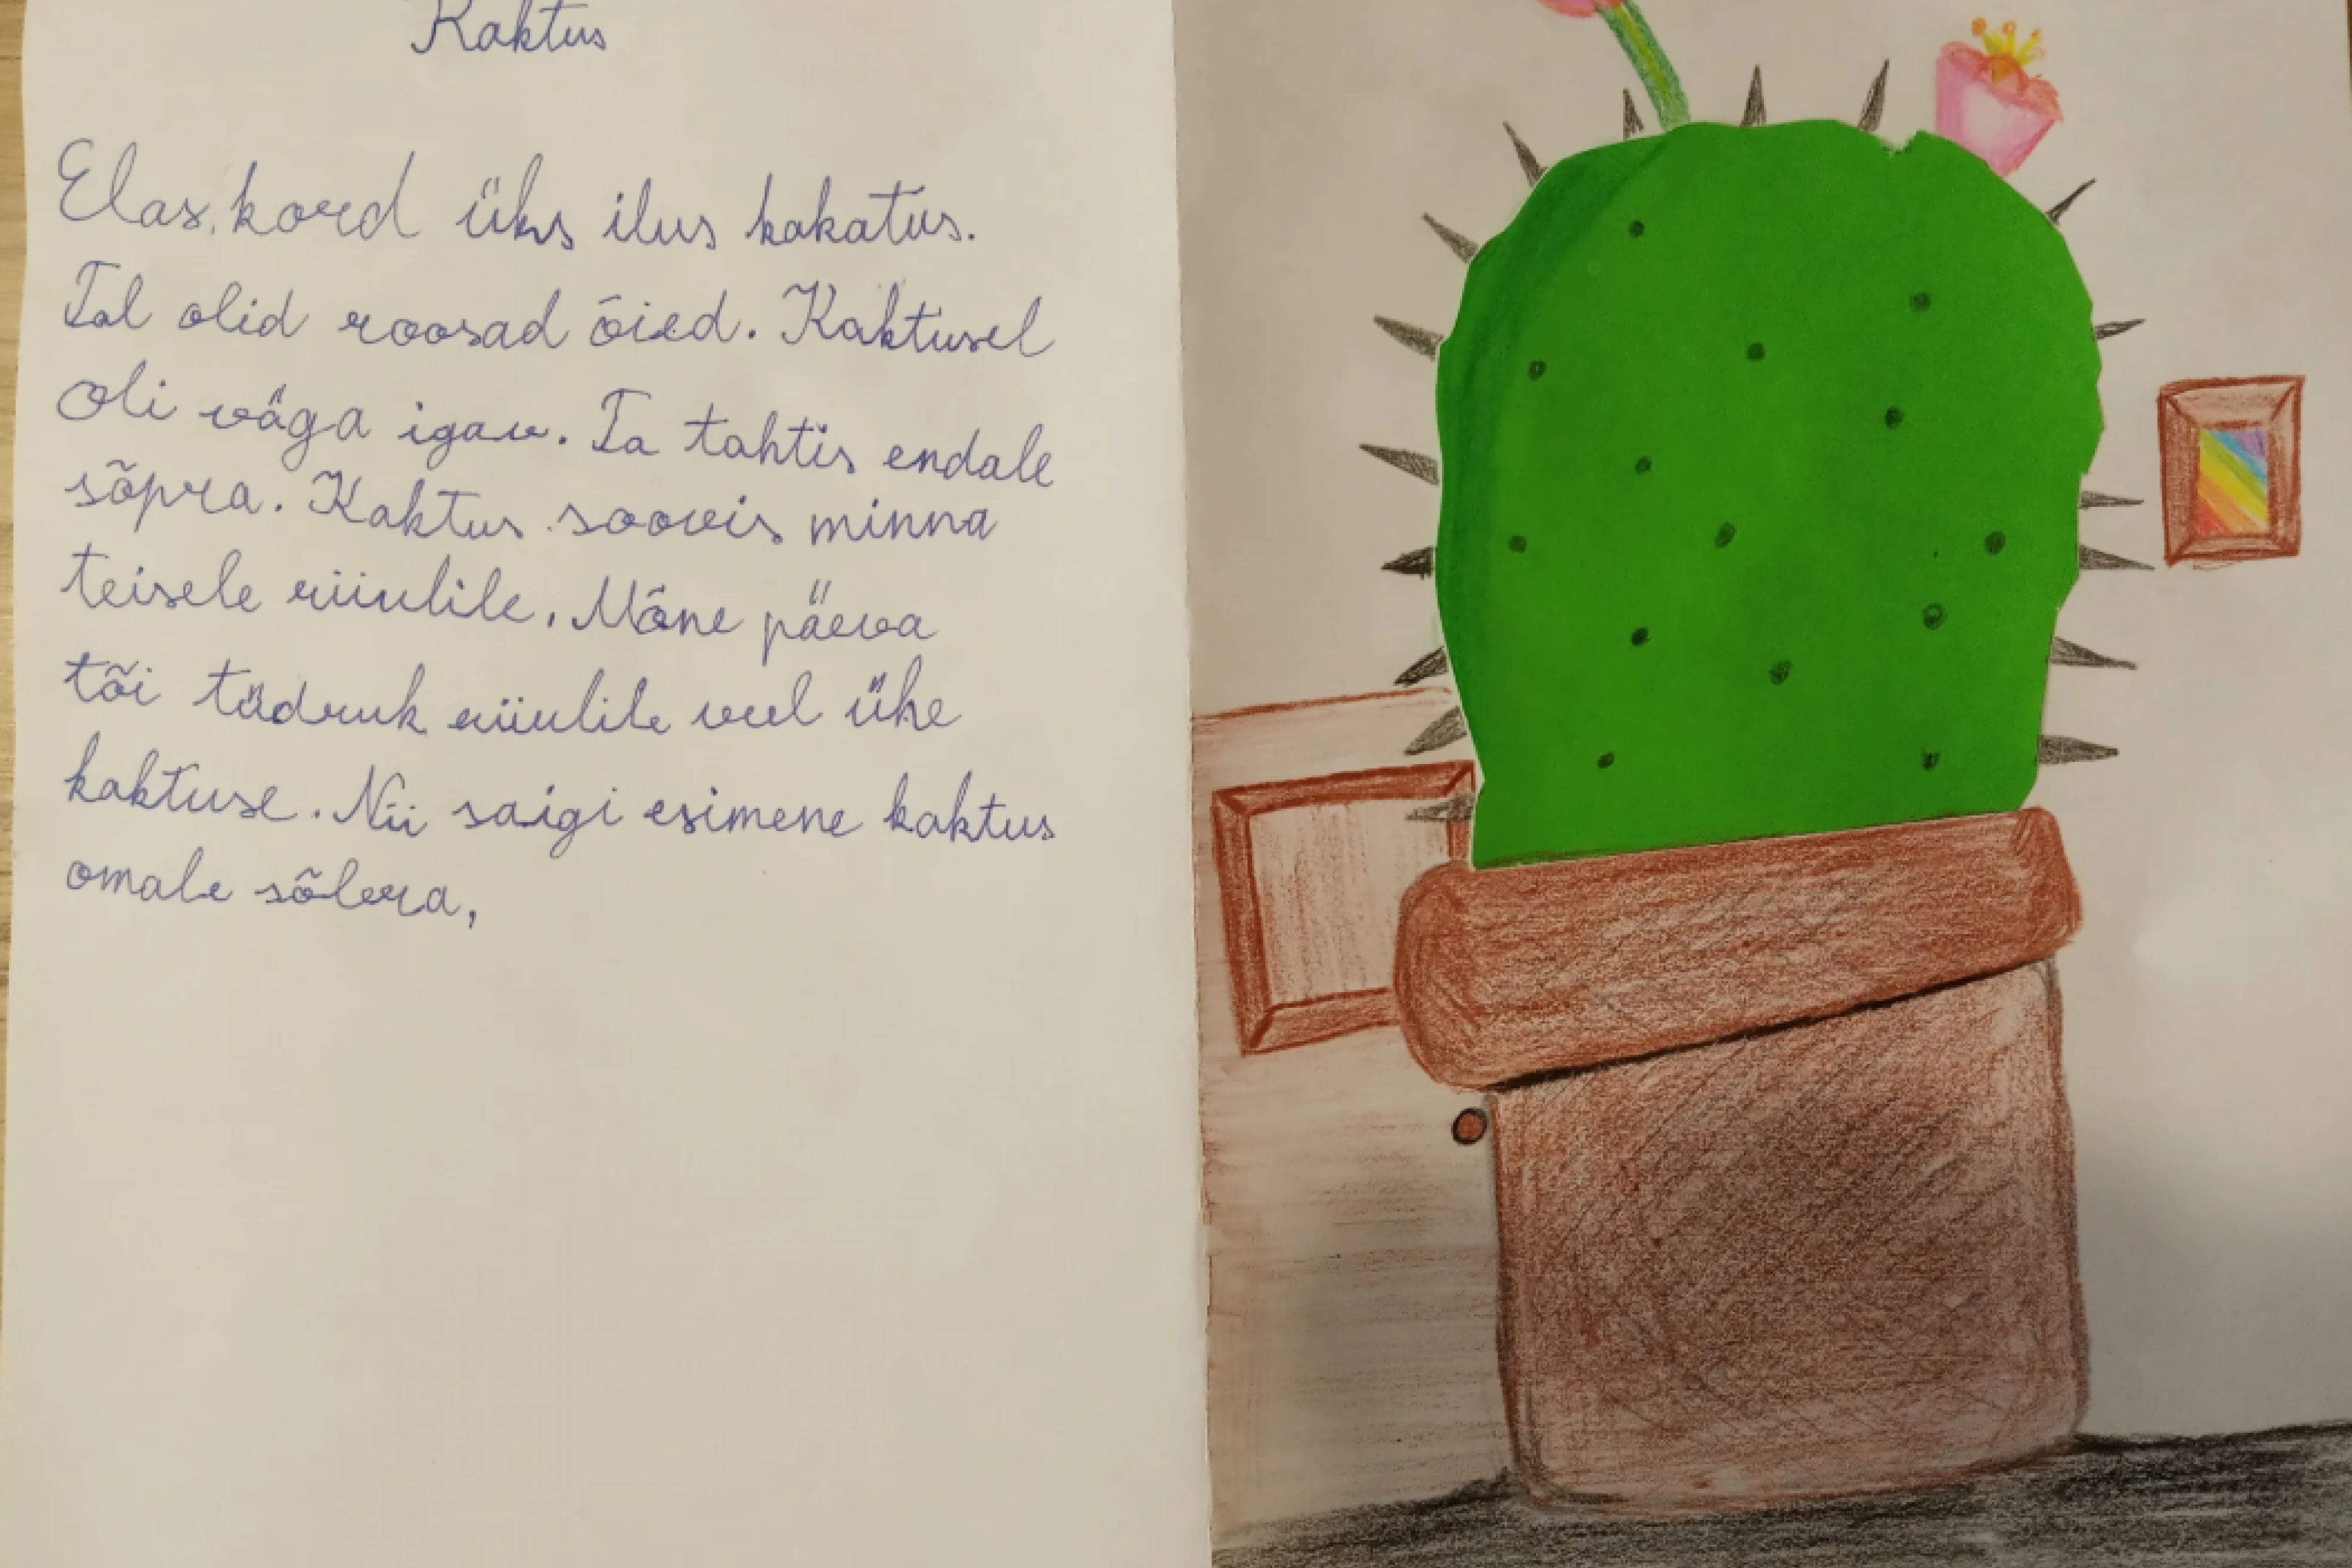 Kaktus
Elas kord üks ilus kakatus.
Tal olid roosad õied. Kaktusel
oli väga igav. Ta tahtis endale
sõpra. Kaktus soovis minna
teisele riiulile. Mõne päeva
tõi tüdruk riiulile veel ühe
kaktuse. Nii saigi esimene kaktus
omale sõbra.